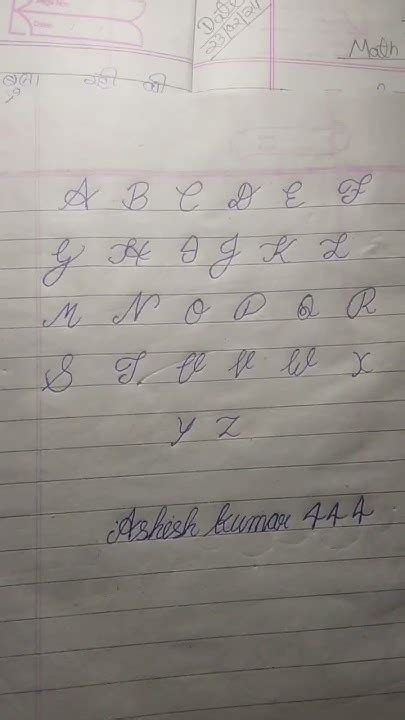 Date
23/02/24
Math
A B C D E F
G H I J K L
M N O P Q R
S T U V W X
Y Z
Ashish kumar 444